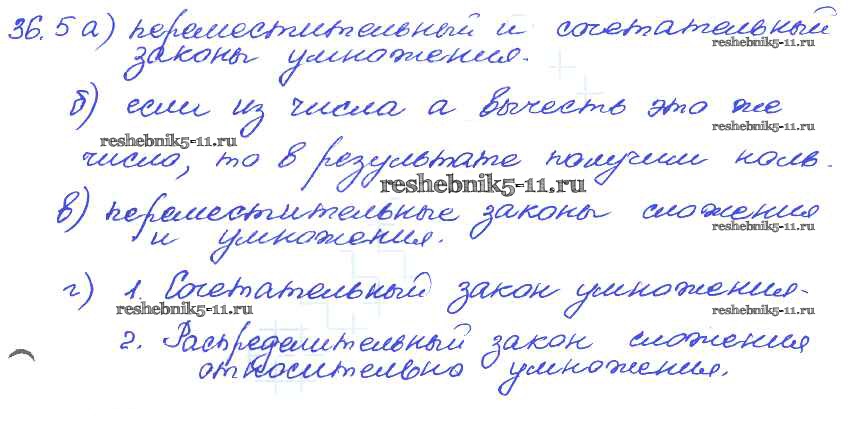 36.5 а) переместительный и сочетательный
reshebnik5-11.ru
законы умножения.
б) если из числа а вычесть это же
reshebnik5-11.ru
reshebnik5-11.ru
число, то в результате получим ноль.
reshebnik5-11.ru
в) переместительные законы сложения
reshebnik5-11.ru
и умножения.
г) 1. Сочетательный закон умножения.
reshebnik5-11.ru
reshebnik5-11.ru
2. Распределительный закон сложения
относительно умножения.
reshebnik5-11.ru